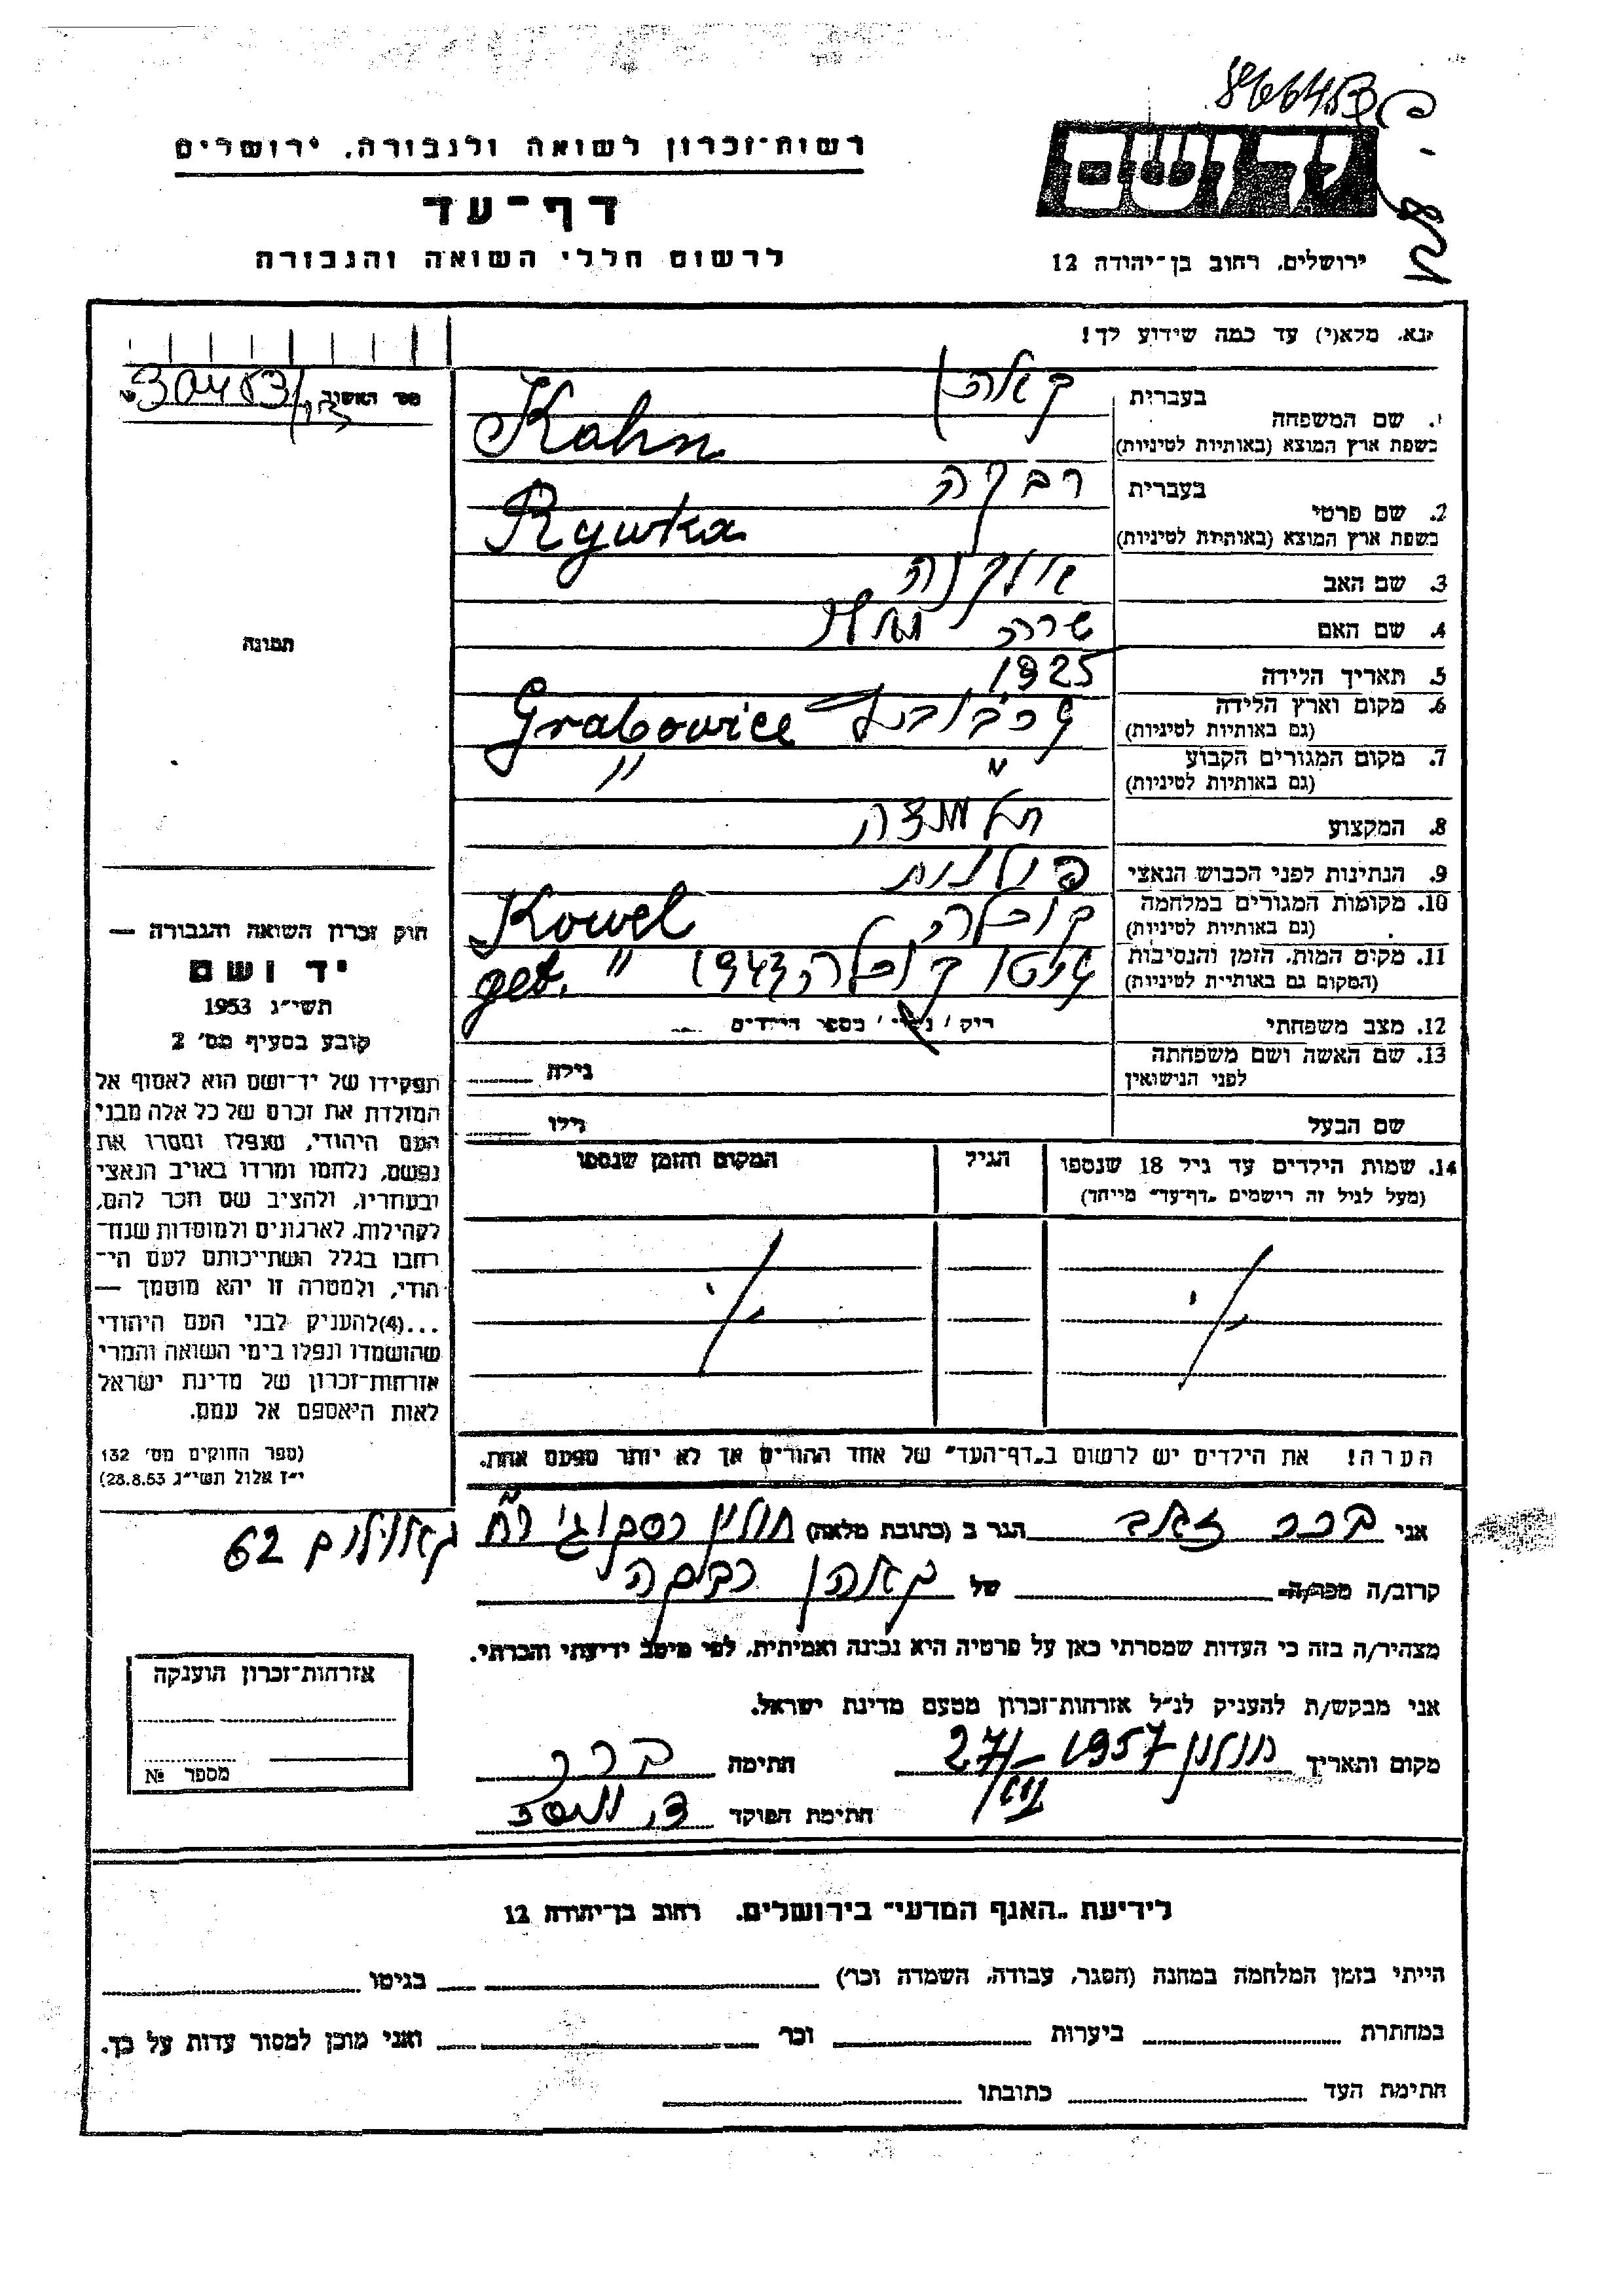 866453
רשות־זכרון לשואה ולגבורה, ירושלים
דף־עד
לרשום חללי השואה והגבורה
ירושלים, רחוב בן־יהודה 12
נא. מלא(י) עד כמה שידוע לך!
1. שם המשפחה בעברית קאהן
בשפת ארץ המוצא (באותיות לטיניות) Kahn
2. שם פרטי בעברית רבקה
בשפת ארץ המוצא (באותיות לטיניות) Rywka
3. שם האב
4. שם האם שרה
5. תאריך הלידה 1925
6. מקום וארץ הלידה (גם באותיות לטיניות) Grabowice
7. מקום המגורים הקבוע (גם באותיות לטיניות) " "
8. המקצוע תלמידה
9. הנתינות לפני הכבוש הנאצי פולנית
10. מקומות המגורים במלחמה (גם באותיות לטיניות) קובלה Kowel
11. מקום המות, הזמן והנסיבות (המקום גם באותיות לטיניות) גיטו קובלה 1943 " get.
12. מצב משפחתי רוק / נשוי / מספר הילדים
13. שם האשה ושם משפחתה לפני הנישואין גילה
שם הבעל גילו
14. שמות הילדים עד גיל 18 שנספו הגיל המקום והזמן שנספו
(מעל לגיל זה רישמים "דף־עד" מייחד)
הערה! את הילדים יש לרשום ב"דף־העד" של אחד ההורים אך לא יותר מפעם אחת.
מס' האשור
תמונה
חוק זכרון השואה והגבורה —
יד ושם
תשי"ג 1953
קובע בסעיף מס' 2
תפקידו של יד־ושם הוא לאסוף אל
המולדת את זכרם של כל אלה מבני
העם היהודי, שנפלו ומסרו את
נפשם, נלחמו ומרדו באויב הנאצי
ובעוזריו, ולהציב שם וזכר להם,
לקהילות, לארגונים ולמוסדות שנח־
רבו בגלל השתייכותם לעם הי־
הודי, ולמטרה זו יהא מוסמך —
...(4)להעניק לבני העם היהודי
שהושמדו ונפלו בימי השואה והמרי
אזרחות־זכרון של מדינת ישראל
לאות היאספם אל עמם.
(ספר החוקים מס' 132
י"ז אלול תשי"ג 28.8.53)
אני ברר זאב הגר ב (כתובת מלאה) חולון 62
קרוב/ה מכר/ה של קאהן רבקה
מצהיר/ה בזה כי העדות שמסרתי כאן על פרטיה היא נכונה ואמיתית, לפי מיטב ידיעתי והכרתי.
אני מבקש/ת להעניק לנ"ל אזרחות־זכרון מטעם מדינת ישראל.
מקום ותאריך חולון 1957 27/VII חתימה ברר
חתימת הפוקד
אזרחות־זכרון הוענקה
מספר №
לידיעת "האגף המדעי" בירושלים, רחוב בן־יהודה 12
הייתי בזמן המלחמה במחנה (הסגר, עבודה, השמדה וכר') בגיטו
במחתרת ביערות וכר' ואני מוכן למסור עדות על כך.
חתימת העד כתובתו